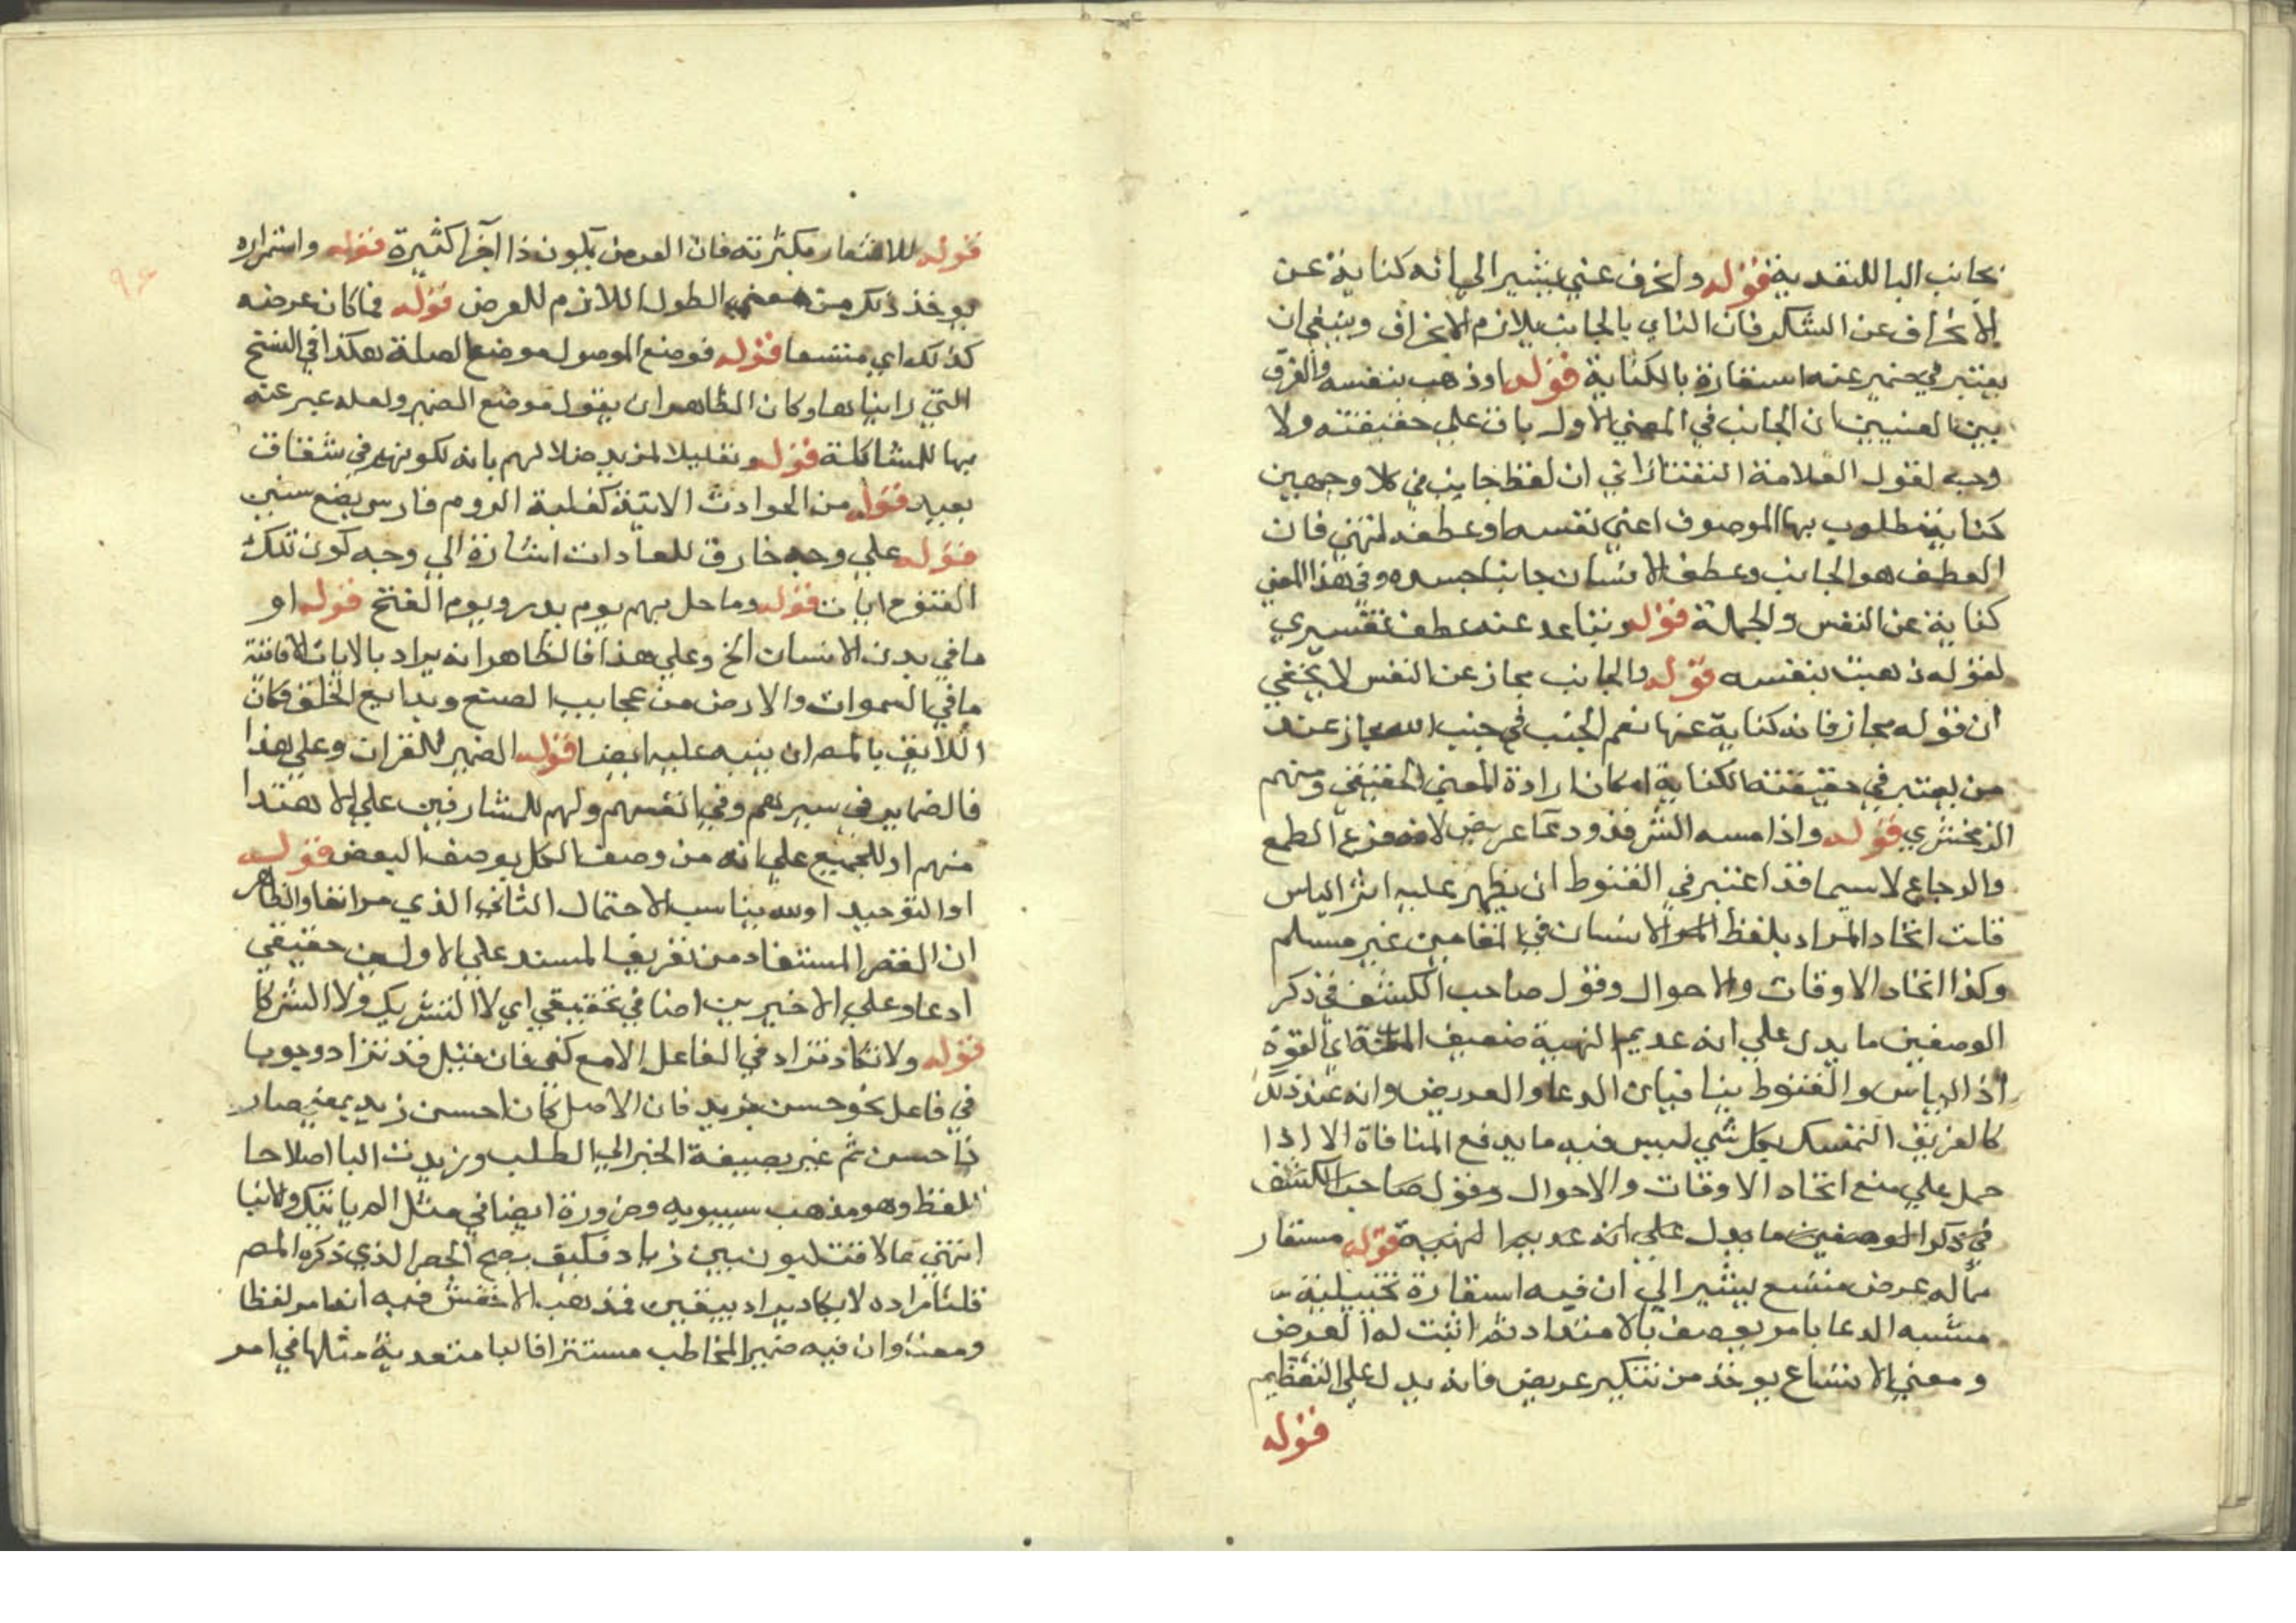 بجانب البا للتعدية قوله وانحرف عني يشير الي انه كناية عن
الانحراف عن الشكر فان الناي بالجانب يلازم الانحراف وينبغي ان
يعتبر في ضمير عنه استعارة بالكناية قوله اوذهب بنفسه والفرق
بين المعنيين ان الجانب في المعني الاول باق علي حقيقته ولا
وجه لقول العلامة التفتازاني ان لفظ جانب في كلا وجهين
كناية مطلوب بها الموصوف اعني نفسه وعطفه انتهي فان
العطف هو الجانب وعطفا الانسان جانبا جسده وفي هذا المعني
كناية عن النفس والجملة قوله وتباعد عنه عطف تفسيري
لقوله ذهبت بنفسه قوله والجانب مجاز عن النفس لا يخفي
ان قوله مجاز فانه كناية عنها نعم الجنب في جنب الله مجاز عند
من يعتبر في حقيقته الكناية امكان ارادة المعني الحقيقي ومنهم
الزمخشري قوله واذا مسه الشر فذو دعا عريض لانه فرع الطمع
والرجاع لا سيما قد اعتبر في القنوط ان يظهر عليه اثر الياس
قلت اتحاد المراد بلفظ الانسان في المقامين غير مسلم
وكذا اتحاد الاوقات والاحوال وقول صاحب الكشف في ذكر
الوصفين ما يدل علي انه عديم النهية ضعيف المنة اي القوة
اذ الياس والقنوط ينافيان الدعا والعريض وانه عند ذلك
كالغريق المتمسك بكل شي ليس فيه ما يدفع المنافاة الا اذا
حمل علي منع اتحاد الاوقات والاحوال وقول صاحب الكشف
في ذكر الوصفين ما يدل علي انه عديم النهية قوله مستعار
مما له عرض متسع يشير الي ان فيه استعارة تخييلية
مشبه الدعا بامر يوصف بالامتداد ثم اثبت له العرض
ومعني الاتساع يوخذ من تنكير عريض فانه يدل علي التعظيم
قوله
٩٤
قوله للاشعار بكثرته فان العرض يكون ذا اجزا كثيرة قوله واستمراره
يوخذ ذلك من معني الطول اللازم للعرض قوله فما كان عرضه
كذلك اي متسعا قوله فوضع الموصول موضع الصلة هكذا في النسخ
التي رايناها وكان الظاهر ان يقول موضع الضمير ولعله عبر عنه
بها للمشاكلة قوله وتعليلا لمزيد ضلالهم بانه لكونهم في شقاق
بعيد قوله من الحوادث الاتية كغلبة الروم فارس بضع سنين
قوله علي وجه خارق للعادات اشارة الي وجه كون تلك
الفتوح ايات قوله وما حل بهم يوم بدر ويوم الفتح قوله او
ما في بدن الانسان الخ وعلي هذا فالظاهر انه يراد بالايات الافاقية
ما في السموات والارض من عجايب الصنع وبدايع الخلق فكان
اللايق بالمصر ان ينبه عليه ايضا قوله الضمير للقران وعلي هذا
فالضماير في سيريهم وفي انفسهم ولهم للمشارفين علي الاهتدا
منهم او للجميع علي انه من وصف الكل بوصف البعض قوله
او التوحيد اولله يناسب الاحتمال الثاني الذي مر انفا والظاهر
ان القصر المستفاد من تعريف المسند علي الاولين حقيقي
ادعا وعلي الاخيرين اضافي تحقيقي اي لا التشريك ولا الشركا
قوله ولا تكاد تزاد في الفاعل الا مع كفي فان قيل قد تزاد وجوبا
في فاعل نحو حسن بزيد فان الاصل كان احسن زيد بمعني صار
ذا حسن ثم غير بصيغة الخبر الي الطلب وزيدت البا اصلاحا
للفظ وهو مذهب سيبويه وضرورة ايضا في مثل الم ياتيك والانبا
تنمي بما لاقت لبون بني زياد فكيف يصح الحصر الذي ذكره المصر
قلنا مراده لا يكاد يراد بيقين فذهب الاخفش فيه انه امر لفظا
ومعني وان فيه ضمير المخاطب مستترا فالبا متعدية مثلها في امر